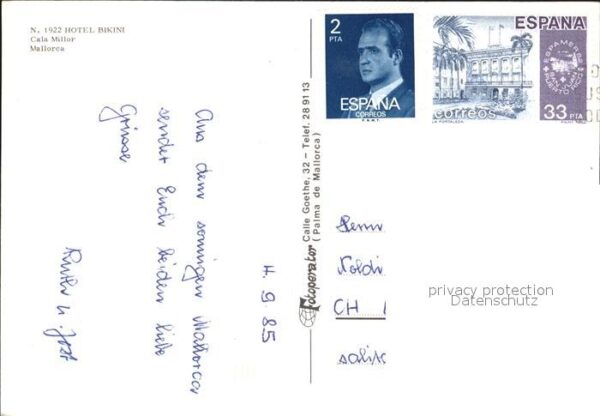 N. 1922 HOTEL BIKINI
Cala Millor
Mallorca
4. 9 85
Aus dem sonnigen Mallorca
sendet Euch beiden liebe
Grüsse
Ruth u. Jost
Fotoperator Calle Goethe, 32 - Telef. 28 91 13
(Palma de Mallorca)
2
PTA
ESPAÑA
CORREOS
F.N.M.T.
ESPAÑA
ESPAMER 82
SAN JUAN
PUERTO RICO
correos
33 PTA
LA FORTALEZA
CH
privacy protection
Datenschutz